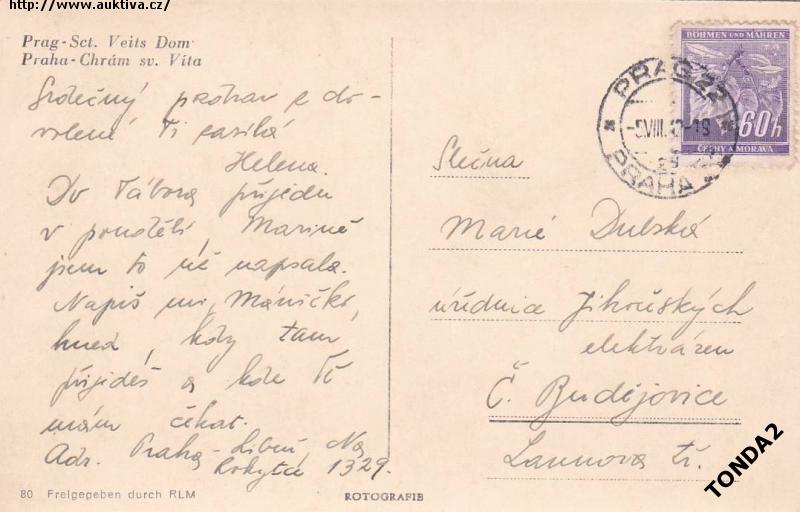 http://www.auktiva.cz/
Prag-Sct. Veits Dom
Praha-Chrám sv. Víta
Srdečný pozdrav z do-
volené Ti zasílá
Helena.
Do Tábora přijedu
v pondělí, Marině
jsem to už napsala.
Napiš mi, Máničko,
hned, kdy tam
přijedeš a kde Tě
mám čekat.
Adr. Praha-Libeň Na
Rokytce 1329.
80 Freigegeben durch RLM
ROTOGRAFIE
BÖHMEN UND MÄHREN
60h
ČECHY A MORAVA
PRAG 22
-5.VIII.
PRAHA
Slečna
Marie Dubská
úřednice Jihočeských
elektráren
Č. Budějovice
Lannova tř.
TONDA2